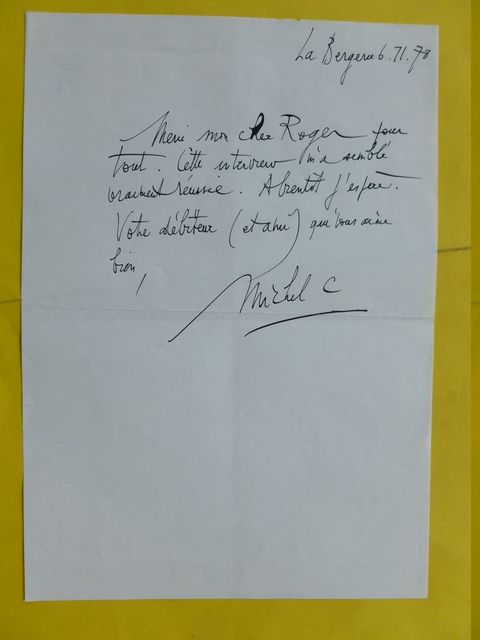 La Bergerie 6.11.78
Merci mon cher Roger pour
tout. Cette interview m'a semblé
vraiment réussie. A bientôt j'espère.
Votre débiteur (et ami) qui vous aime
bien,
Michel C